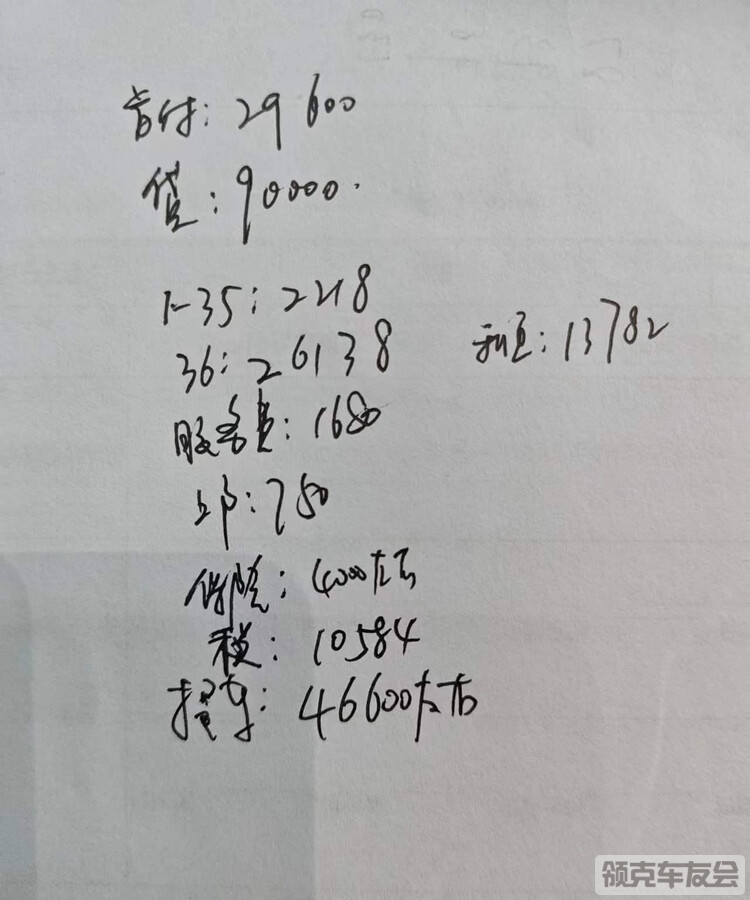 首付：29600
贷：90000.
1-35：2218
36：26138 利息：13782
服务费：1680
上户：750
保险：4000左右
税：10584
提车：46600左右
领克车友会